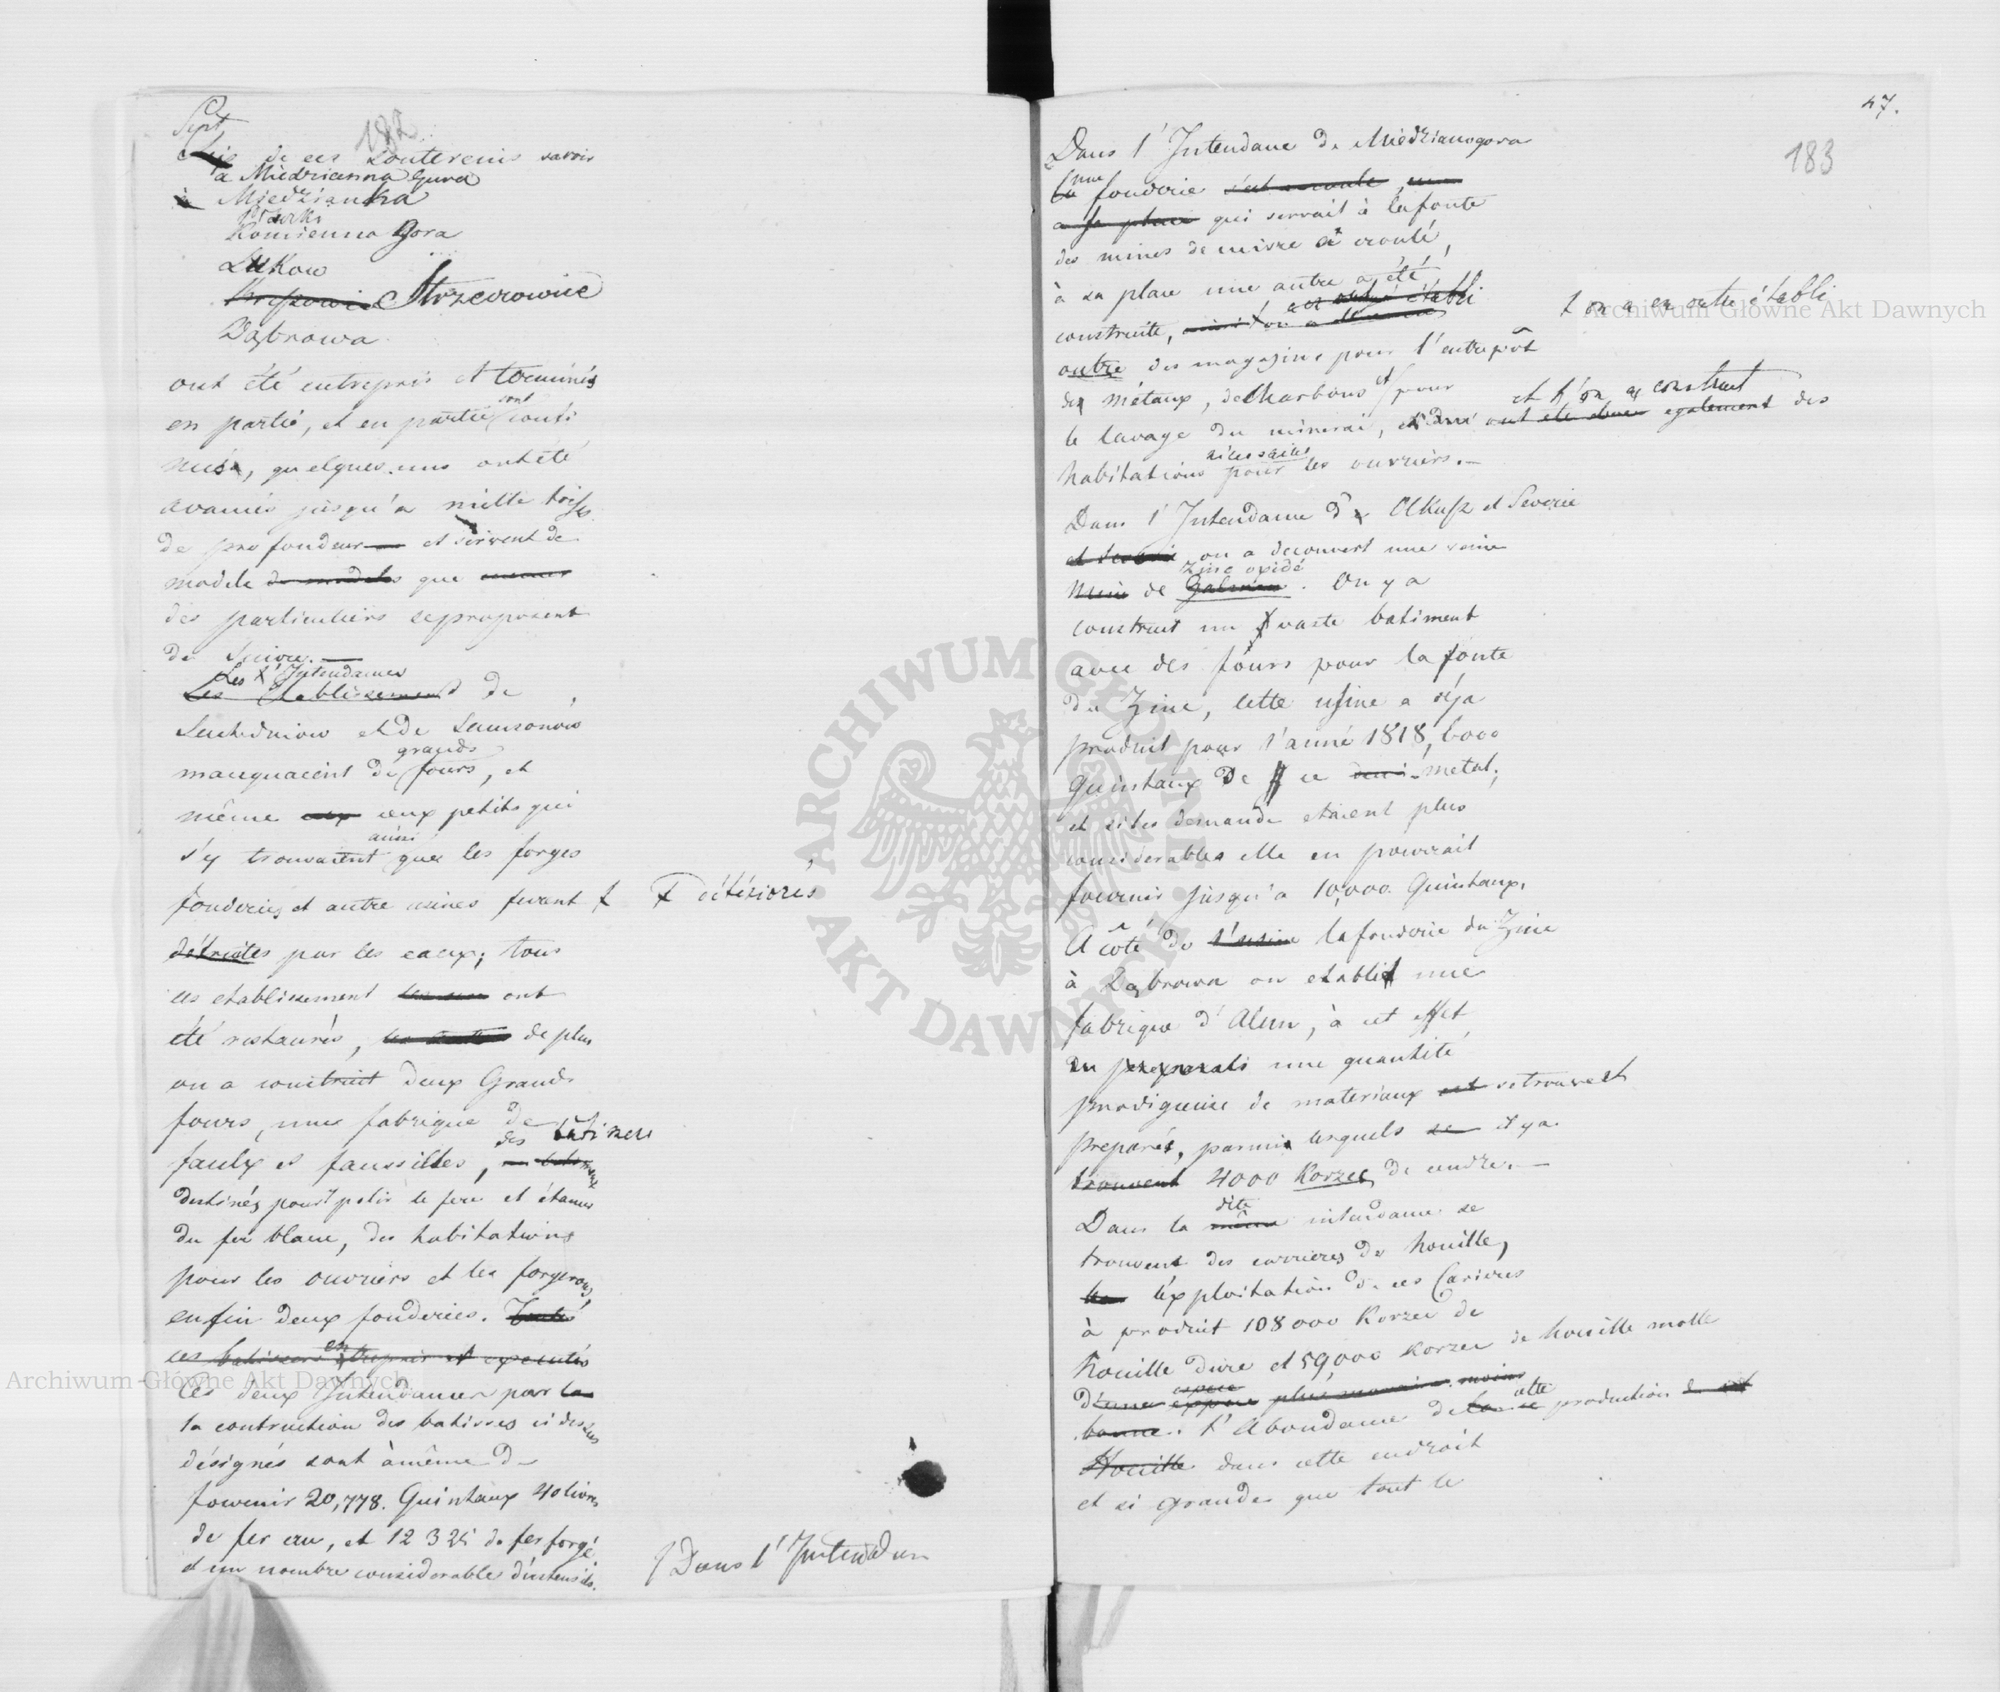 182
Sept
de ces souterrains savoir
a Miedzianna Gura
à Miedzianka
Kamienna Gora
Łukow
Strzerowice
Dąbrowa
ont été entrepris et terminés
en partie, et en partie sont conti
nués, quelques uns ont été
avancés jusqu'a mille toises
de profondeur et servent de
modele de modeles que
des particuliers se proposent
de suivre.
Les Intendances
Les Etablissement de
Suchedniow et de Samsonow
manquaient de grands fours, et
même ceux petits qui
s'y trouvaient ainsi que les forges
fonderies et autre usines furent
détériorés
détruites par les eaux; tous
ces etablissement ont
été restaurés, de plus
on a construit deux Grands
fours, une fabrique de
faulx et faussilles, des batimens
destinés pour polir le fer et étamer
du fer blanc, des habitations
pour les ouvriers et les forgerons,
enfin deux fonderies. Toutes
ces batisses entrepris et executés
Ces deux Intendances par la
la contruction des batisses ci dessus
désignés sont à même de
fournir 20,778. Quintaux 40 livres
de fer cru, et 12 325 de fer forgé
et un nombre considerable d'ustensils.
Dans l'Intendan
47.
183
Dans l'Intendance de Miedzianogora
une fonderie s'est ecroulé
a sa place qui servait à la fonte
des mines de cuivre a croulé,
à sa place une autre a été
construite,
on a en outre établi
outre des magazins pour l'entrepôt
des métaux, de Charbons et pour
le lavage du minerai, et l'on a construit
ont été egalement des
habitations nécessaires pour les ouvriers.
Dans l'Intendance d'Olkusz et Severie
on a decouvert une veine
de zinc oxidé Galman. On y a
construit un vaste batiment
avec des fours pour la fonte
du Zinc, cette usine a déja
produit pour l'année 1818, 6000
Quintaux de ce demi-metal;
et si les demande etaient plus
considerables elle en pourrait
fournir jusqu'a 10,000 Quintaux.
A côté de l'usine la fonderie du Zinc
à Dąbrowa on etablit une
fabrique d'Alun, à cet effet
une quantité
prodigieuse de materiaux est se trouvent
preparés, parmis lesquels se il y a
trouvent 4000 Korzec de cendre.
Dans la dite même intendance se
trouvent des carrieres de houille,
l'exploitation de ces Carieres
à produit 108000 Korzec de
houille dure et 59,000 Korzec de houille molle
d'une espece plus moins
bonne. l'Abondance de cette production
Houille dans cette endroit
et si grande que tout le
Archiwum Główne Akt Dawnych
Archiwum Główne Akt Dawnych
ARCHIWUM GŁÓWNE AKT DAWNYCH